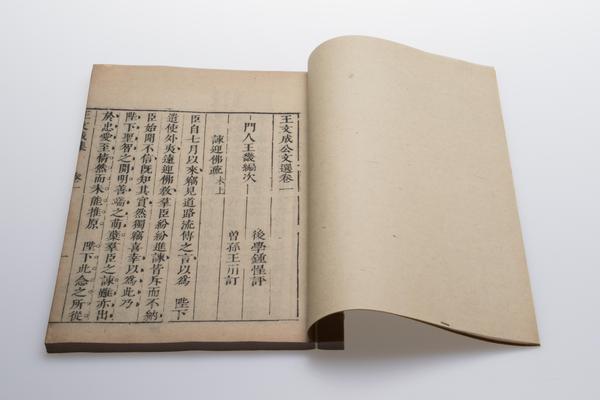 王文成公文選卷一
門人王畿編次
後學鍾惺評
曾孫王
訂
諫迎佛疏 未上
臣自七月以來竊見道路流傳之言以爲 陛下
道使外夷遠迎佛教羣臣紛紛進諫皆斥而不納
臣始聞不信旣知其實然獨竊喜幸以爲此乃
陛下聖智之開明善端之萌櫱羣臣之諫雖亦出
於忠愛至情然而未能推原 陛下此念之所從